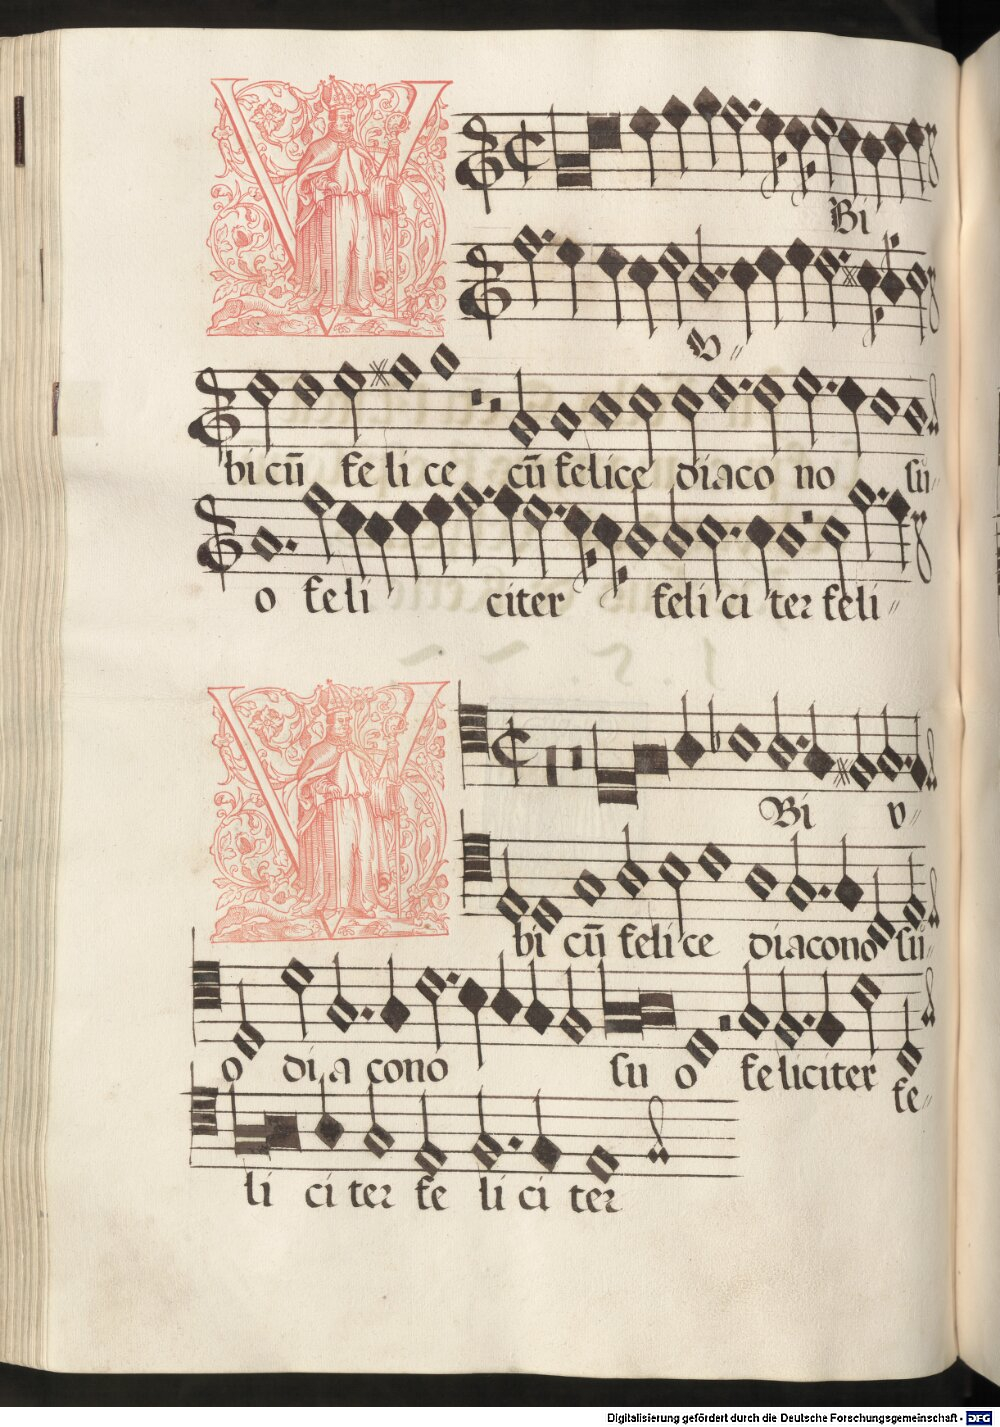 V
Bi
v〃
bi cū fe li ce cū felice diaco no sū〃
o feli citer feli ci ter feli〃
V
Bi v〃
bi cū feli ce diacono sū〃
o di a cono su o fe liciter fe〃
li ci ter fe li ci ter
Digitalisierung gefördert durch die Deutsche Forschungsgemeinschaft - DFG